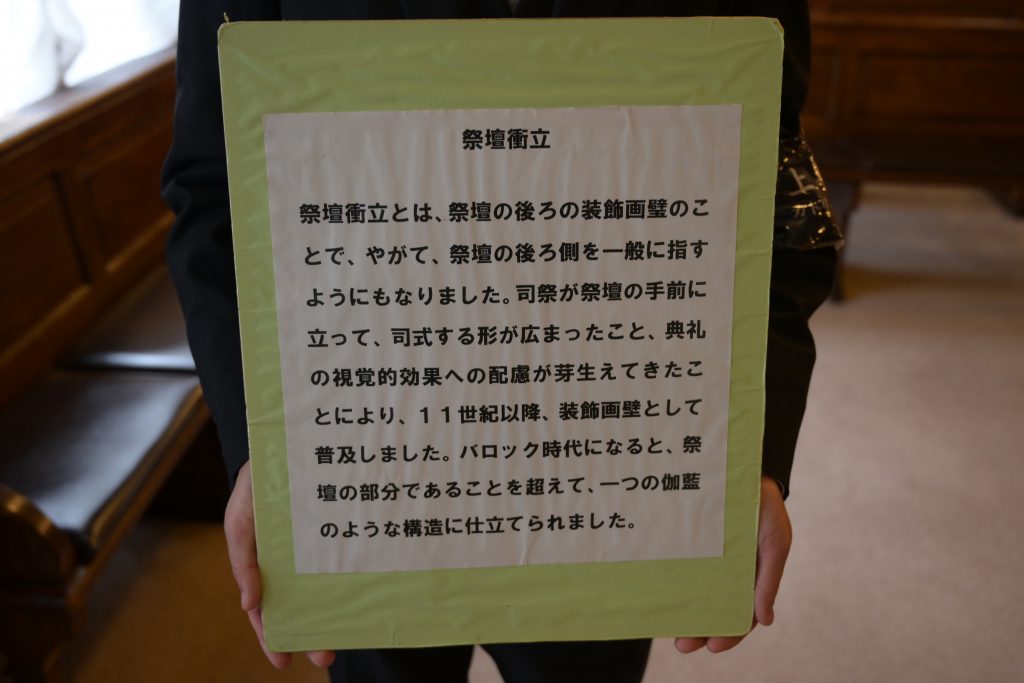 祭壇衝立
祭壇衝立とは、祭壇の後ろの装飾画璧のこ
とで、やがて、祭壇の後ろ側を一般に指す
ようにもなりました。司祭が祭壇の手前に
立って、司式する形が広まったこと、典礼
の視覚的効果への配慮が芽生えてきたこ
とにより、11世紀以降、装飾画壁として
普及しました。バロック時代になると、祭
壇の部分であることを超えて、一つの伽藍
のような構造に仕立てられました。
上